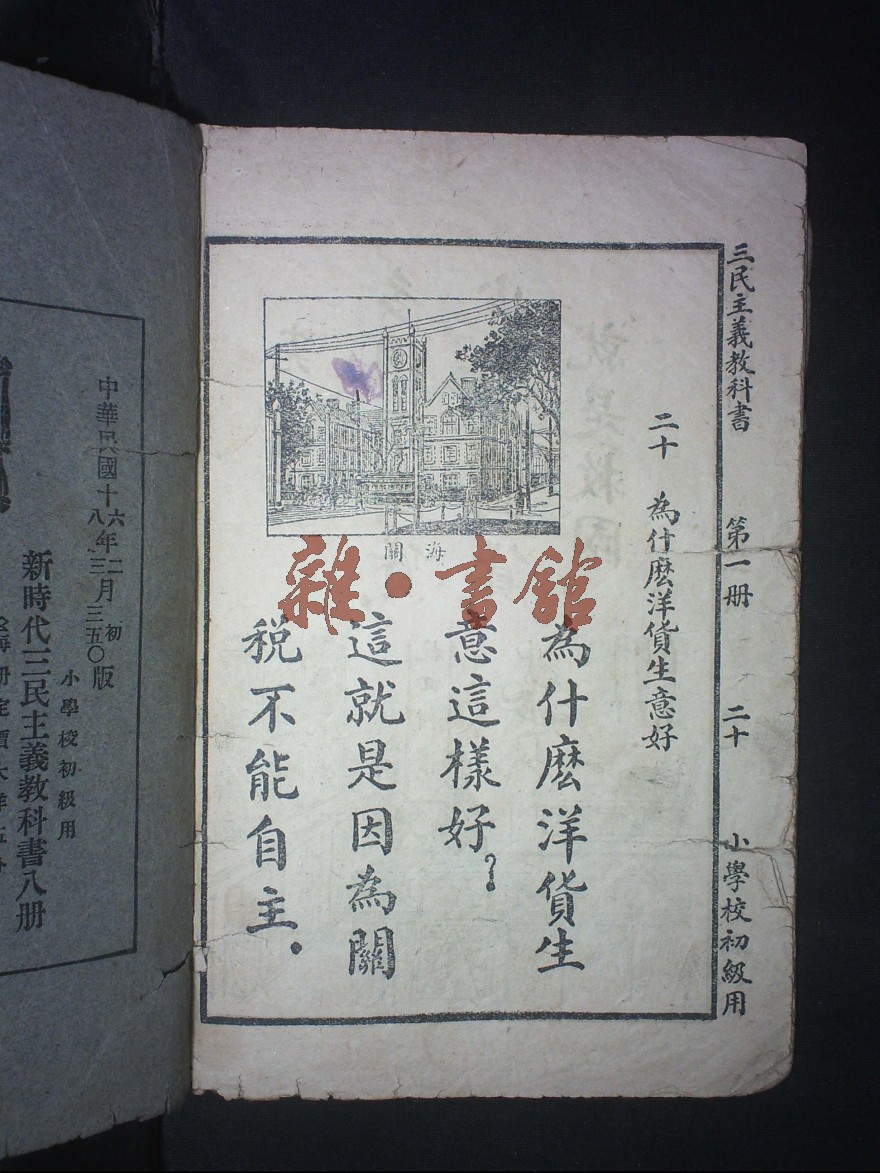 三民主義教科書 第一册 二十 小學校初級用
二十 為什麽洋貨生意好
海關
為什麽洋貨生
意這樣好?
這就是因為關
税不能自主.
雜·書館
中華民國十六年二月初版
十八年三月三五〇版
小學校初級用
新時代三民主義教科書八册